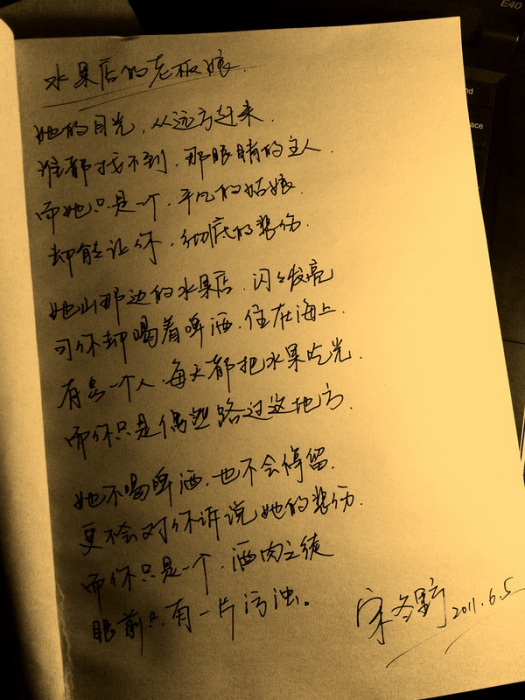 水果店的老板娘
她的目光，从远方赶来
谁都找不到，那眼睛的主人
而她只是一个，平凡的姑娘
却能让你，彻底的悲伤
她山那边的水果店，闪闪发亮
可你却喝着啤酒，住在海上
有另一个人，每天都把水果吃光
而你只是偶然路过这地方
她不喝啤酒，也不会停留
更不会对你诉说她的悲伤
而你只是一个，酒肉之徒
眼前只有一片污浊。
宋冬野 2011.6.5
E40